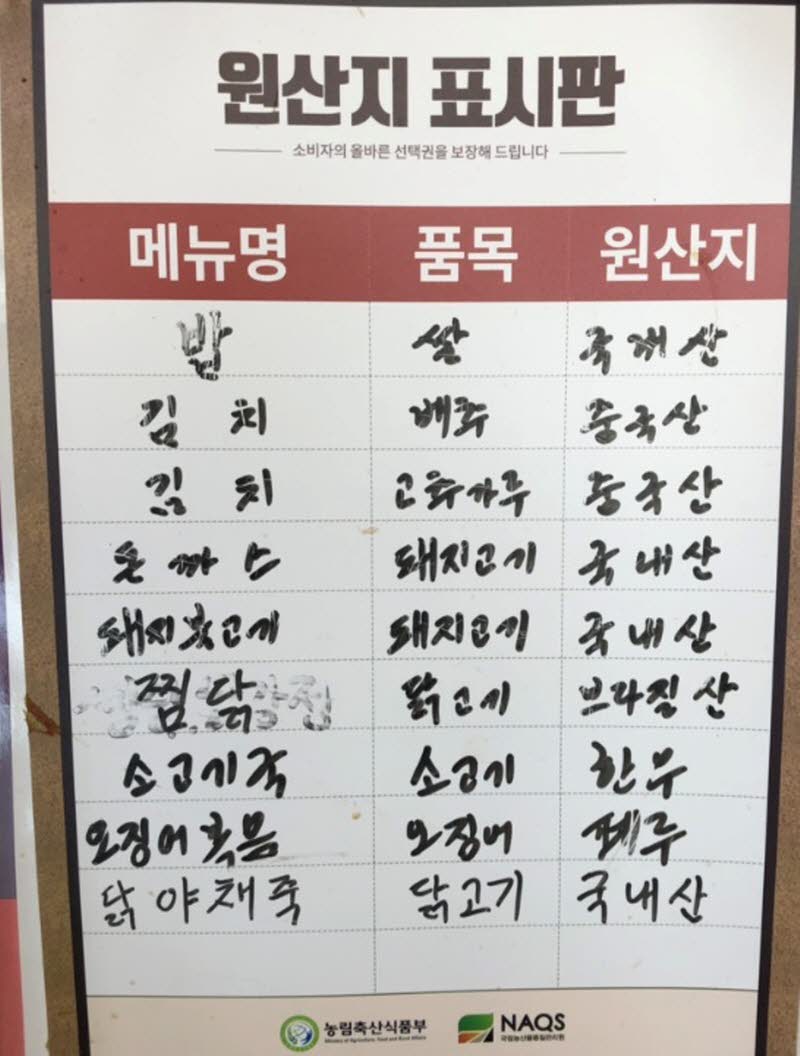 원산지 표시판
소비자의 올바른 선택권을 보장해 드립니다
메뉴명 품목 원산지
밥 쌀 국내산
김치 배추 중국산
김치 고추가루 중국산
돈까스 돼지고기 국내산
돼지불고기 돼지고기 국내산
찜닭 닭고기 브라질산
소고기국 소고기 한우
오징어볶음 오징어 페루
닭야채죽 닭고기 국내산
농림축산식품부 NAQS
Ministry of Agriculture, Food and Rural Affairs 국립농산물품질관리원